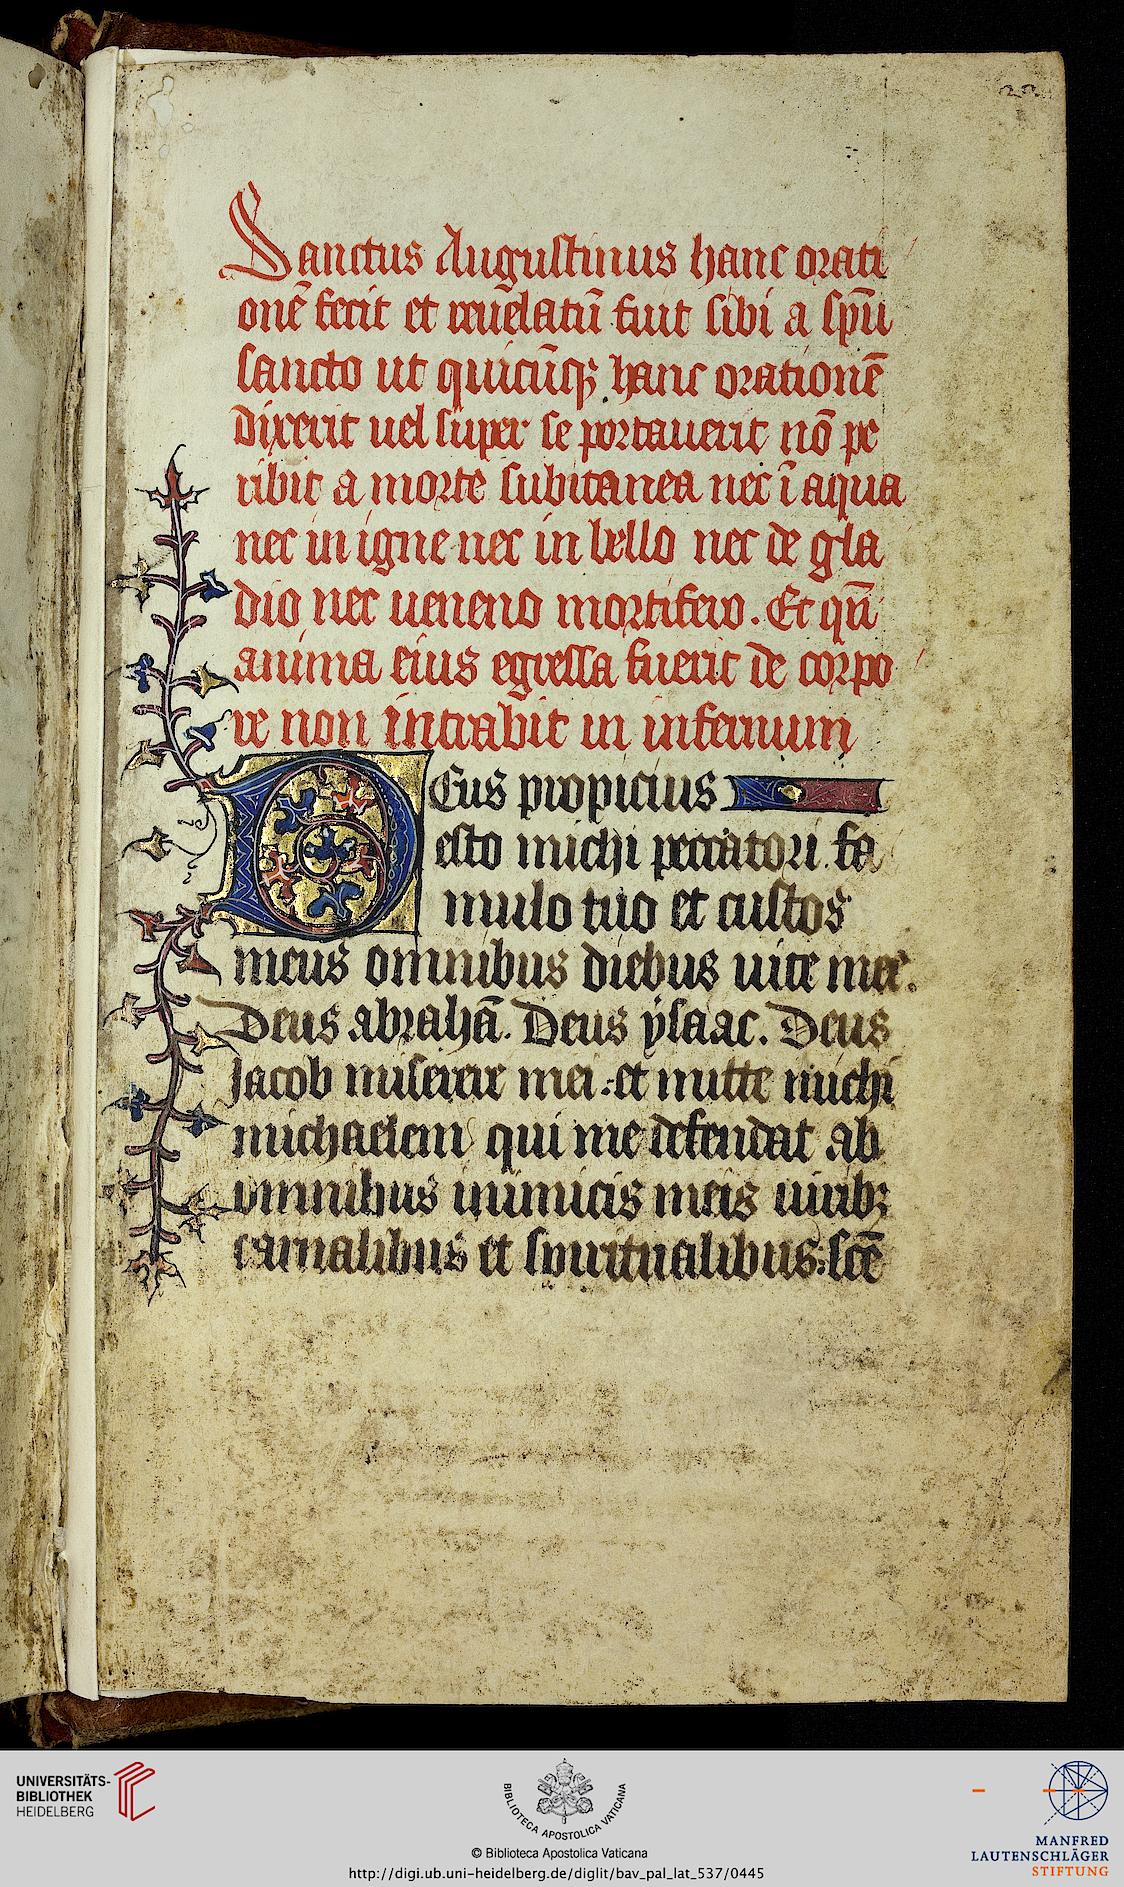 Sanctus Augustinus hanc orati
onē fecit et reuelatū fuit sibi a spū
sancto ut quicūqꝫ hanc orationē
dixerit uel super se portauerit nō pe
ribit a morte subitanea nec ī aqua
nec in igne nec in bello nec de gla
dio nec ueneno mortifero. Et qn̄
anima eius egressa fuerit de corpo
re non intrabit in infernum
DEus propicius
esto michi peccatori fa
mulo tuo et custos
meus omnibus diebus uite mee.
Deus abrahā. Deus ysaac. Deus
Jacob miserere mei : et mitte michi
michaelem qui me defendat ab
omnibus inimicis meis uisibꝫ
carnalibus et spiritualibus : scē
UNIVERSITÄTS-
BIBLIOTHEK
HEIDELBERG
BIBLIOTECA APOSTOLICA VATICANA
© Biblioteca Apostolica Vaticana
http://digi.ub.uni-heidelberg.de/diglit/bav_pal_lat_537/0445
MANFRED
LAUTENSCHLÄGER
STIFTUNG